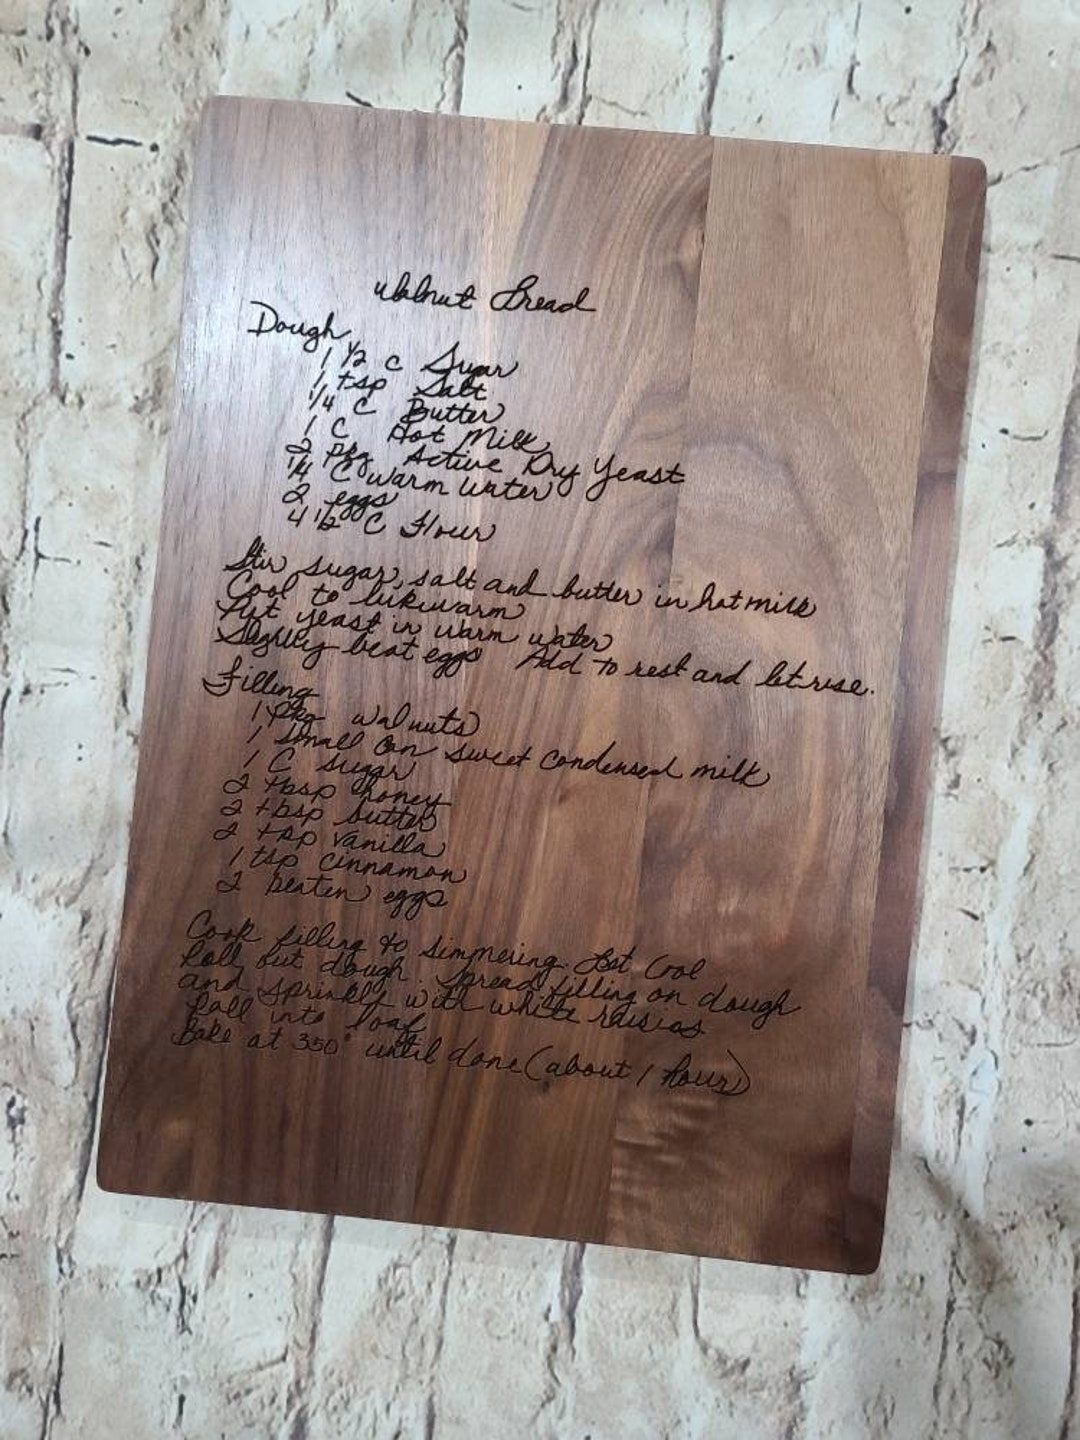 Walnut Bread
Dough
1 1/2 c Sugar
1 tsp Salt
1/4 C Butter
1 C Hot Milk
2 pkg Active Dry Yeast
1/4 C warm water
2 eggs
4 1/2 C Flour
Stir sugar, salt and butter in hot milk
Cool to lukewarm
Put yeast in warm water
Slightly beat eggs Add to rest and let rise.
Filling
1 pkg walnuts
1 small can sweet condensed milk
1 C sugar
2 tbsp honey
2 tbsp butter
2 tsp vanilla
1 tsp cinnamon
2 beaten eggs
Cook filling to simmering. Let Cool
Roll out dough. Spread filling on dough
and sprinkle with white raisins
Roll into loaf
Bake at 350° until done (about 1 hour)